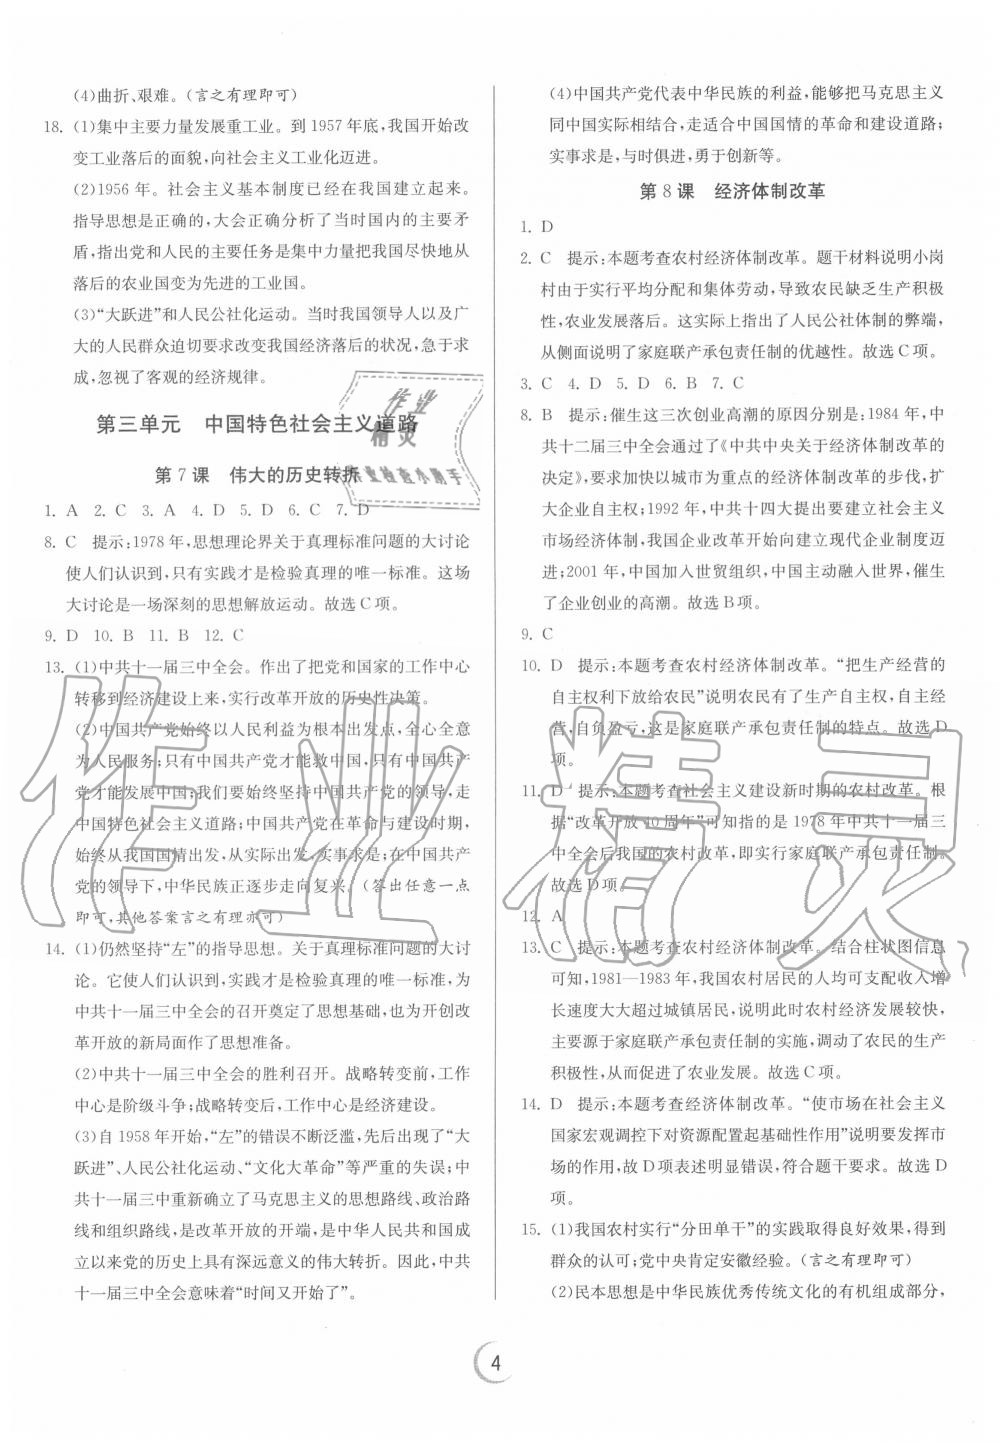 (4)曲折、艰难。(言之有理即可)
18. (1)集中主要力量发展重工业。到 1957 年底,我国开始改
变工业落后的面貌,向社会主义工业化迈进。
(2)1956 年。社会主义基本制度已经在我国建立起来。
指导思想是正确的,大会正确分析了当时国内的主要矛
盾,指出党和人民的主要任务是集中力量把我国尽快地从
落后的农业国变为先进的工业国。
(3)“大跃进”和人民公社化运动。当时我国领导人以及广
大的人民群众迫切要求改变我国经济落后的状况,急于求
成,忽视了客观的经济规律。
第三单元 中国特色社会主义道路
第 7 课 伟大的历史转折
1. A 2. C 3. A 4. D 5. D 6. C 7. D
8. C 提示:1978 年,思想理论界关于真理标准问题的大讨论
使人们认识到,只有实践才是检验真理的唯一标准。这场
大讨论是一场深刻的思想解放运动。故选 C 项。
9. D 10. B 11. B 12. C
13. (1)中共十一届三中全会。作出了把党和国家的工作中心
转移到经济建设上来,实行改革开放的历史性决策。
(2)中国共产党始终以人民利益为根本出发点,全心全意
为人民服务;只有中国共产党才能救中国,只有中国共产党
才能发展中国;我们要始终坚持中国共产党的领导,走
中国特色社会主义道路;中国共产党在革命与建设时期,
始终从我国国情出发,从实际出发,实事求是;在中国共产
党的领导下,中华民族正逐步走向复兴。(答出任意一点
即可,其他答案言之有理亦可)
14. (1)仍然坚持“左”的指导思想。关于真理标准问题的大讨
论。它使人们认识到,实践才是检验真理的唯一标准,为
中共十一届三中全会的召开奠定了思想基础,也为开创改
革开放的新局面作了思想准备。
(2)中共十一届三中全会的胜利召开。战略转变前,工作
中心是阶级斗争;战略转变后,工作中心是经济建设。
(3)自 1958 年开始,“左”的错误不断泛滥,先后出现了“大
跃进”、人民公社化运动、“文化大革命”等严重的失误;中
共十一届三中重新确立了马克思主义的思想路线、政治路
线和组织路线,是改革开放的开端,是中华人民共和国成
立以来党的历史上具有深远意义的伟大转折。因此,中共
十一届三中全会意味着“时间又开始了”。
(4)中国共产党代表中华民族的利益,能够把马克思主义
同中国实际相结合,走适合中国国情的革命和建设道路;
实事求是,与时俱进,勇于创新等。
第 8 课 经济体制改革
1. D
2. C 提示:本题考查农村经济体制改革。题干材料说明小岗
村由于实行平均分配和集体劳动,导致农民缺乏生产积极
性,农业发展落后。这实际上指出了人民公社体制的弊端,
从侧面说明了家庭联产承包责任制的优越性。故选 C 项。
3. C 4. D 5. D 6. B 7. C
8. B 提示:催生这三次创业高潮的原因分别是:1984 年,中
共十二届三中全会通过了《中共中央关于经济体制改革的
决定》,要求加快以城市为重点的经济体制改革的步伐,扩
大企业自主权;1992 年,中共十四大提出要建立社会主义
市场经济体制,我国企业改革开始向建立现代企业制度迈
进;2001 年,中国加入世贸组织,中国主动融入世界,催生
了企业创业的高潮。故选 B 项。
9. C
10. D 提示:本题考查农村经济体制改革。“把生产经营的
自主权利下放给农民”说明农民有了生产自主权,自主经
营,自负盈亏,这是家庭联产承包责任制的特点。故选 D
项。
11. D 提示:本题考查社会主义建设新时期的农村改革。根
据“改革开放 40 周年”可知指的是 1978 年中共十一届三
中全会后我国的农村改革,即实行家庭联产承包责任制。
故选 D 项。
12. A
13. C 提示:本题考查农村经济体制改革。结合柱状图信息
可知,1981—1983 年,我国农村居民的人均可支配收入增
长速度大大超过城镇居民,说明此时农村经济发展较快,
主要源于家庭联产承包责任制的实施,调动了农民的生产
积极性,从而促进了农业发展。故选 C 项。
14. D 提示:本题考查经济体制改革。“使市场在社会主义
国家宏观调控下对资源配置起基础性作用”说明要发挥市
场的作用,故 D 项表述明显错误,符合题干要求。故选 D
项。
15. (1)我国农村实行“分田单干”的实践取得良好效果,得到
群众的认可;党中央肯定安徽经验。(言之有理即可)
(2)民本思想是中华民族优秀传统文化的有机组成部分,
4
作业
精灵
作业检查小助手
作业精灵